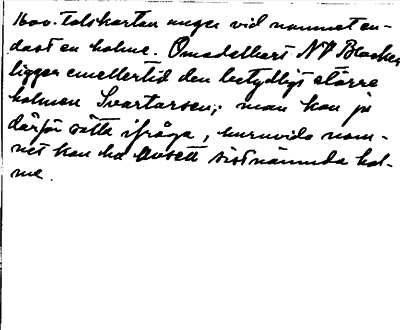 1600-talskartan anger vid namnet en-
dast en holme. Omedelbart NV Blacken
ligger emellertid den betydligt större
holmen Svartarsen; man kan ju
därför sätta ifråga, huruvida nam-
net kan ha avsett sistnämnda hol-
me.